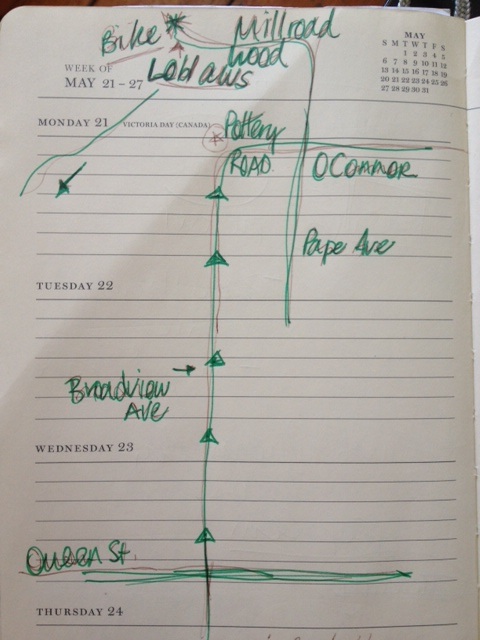 Bike
Millroad
wood
Loblaws
MAY
S M T W T F S
1 2 3 4 5
6 7 8 9 10 11 12
13 14 15 16 17 18 19
20 21 22 23 24 25 26
27 28 29 30 31
WEEK OF
MAY 21 – 27
MONDAY 21 VICTORIA DAY (CANADA)
Pottery
ROAD
OCONNOR
Pape Ave
TUESDAY 22
Broadview
AVE
WEDNESDAY 23
Queen St.
THURSDAY 24